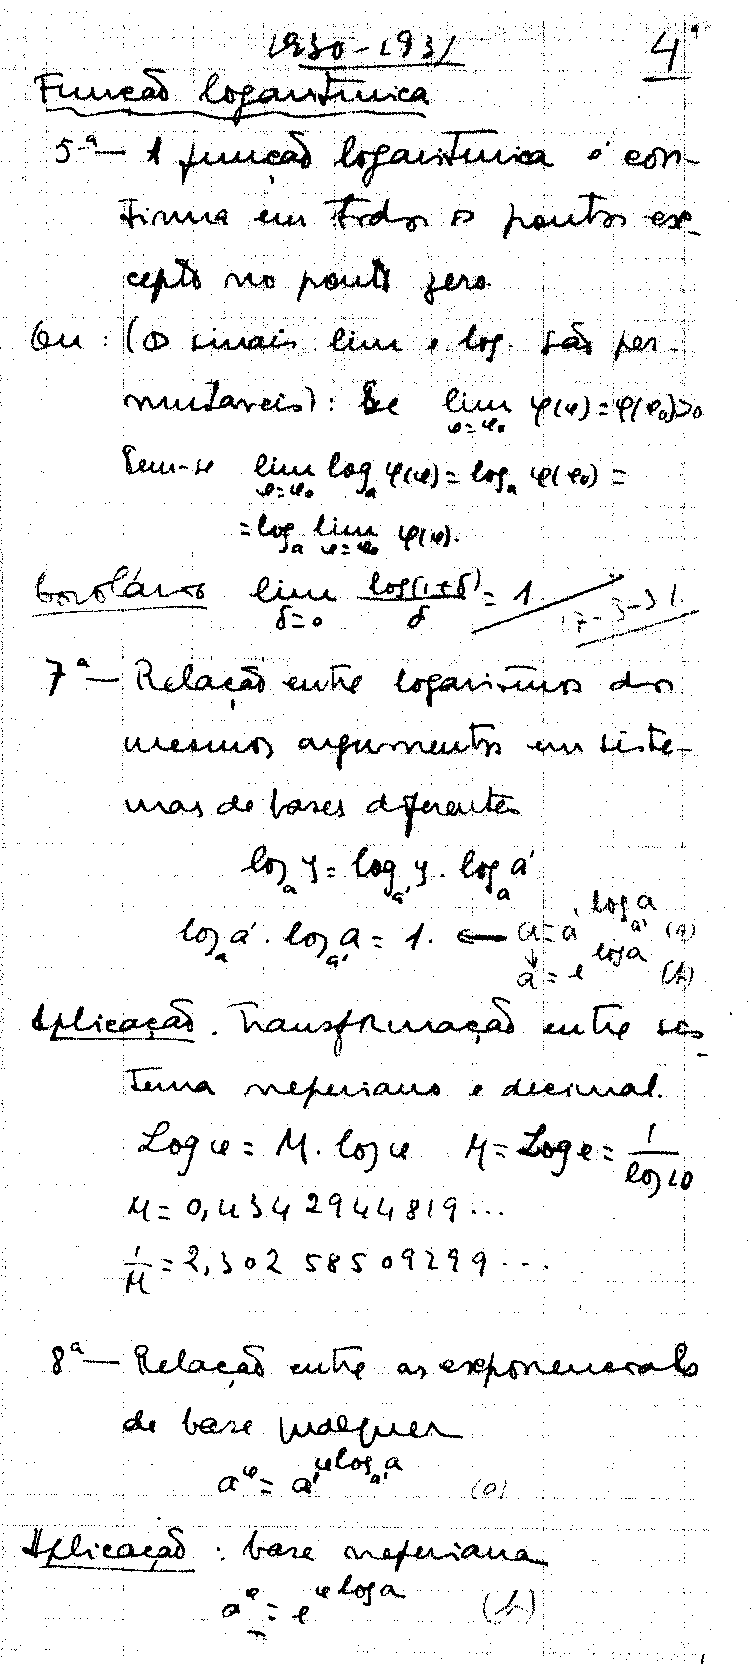 1930-1931 4ª
Função logaritmica
5ª — A função logaritmica é con-
tinua em todos os pontos ex-
cepto no ponto zero.
Ou: (Os sinais lim e log. são per-
mutaveis): Se lim φ(x) = φ(x₀)>0
x=x₀
Tem-se lim logₐ φ(x) = logₐ φ(x₀) =
x=x₀
= logₐ lim φ(x).
x=x₀
Corolário lim log(1+δ)/δ = 1. 17-3-31.
δ=0
7ª — Relação entre logaritmos dos
mesmos argumentos em siste-
mas de bases diferentes
logₐ y = logₐ' y . logₐ a'
logₐ a' . logₐ' a = 1. ← a = a'^(logₐ' a) (a)
a = e^(log a) (b)
Aplicação. Transformação entre sis-
tema neperiano e decimal.
Log x = M. log x M = Log e = 1/log 10
M = 0,43429 44819...
1/M = 2,302 58509299...
8ª — Relação entre as exponenciais
de base qualquer
a^x = a'^(x logₐ' a) (a)
Aplicação: base neperiana
a^x = e^(x log a) (b)